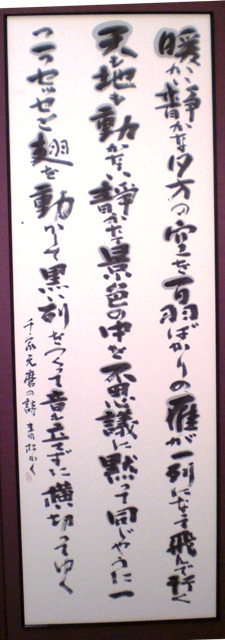 暖かい静かな夕方の空を百羽ばかりの雁が一列になって飛んで行く
天も地も動かない静かな景色の中を不思議に黙って同じやうに一
つ一つセッセと翅を動かして黒い列をつくって音も立てずに横切ってゆく
千家元麿の詩 かく